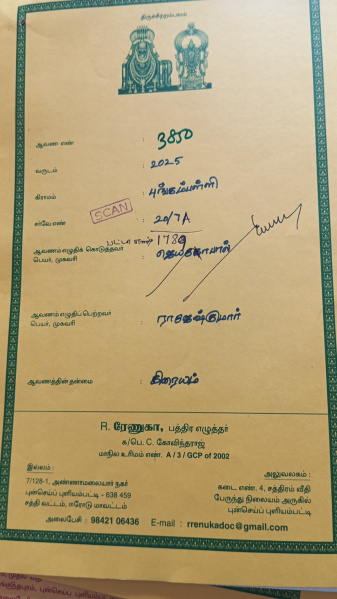 திருச்சிற்றம்பலம்
ஆவண எண் : 3850
வருடம் : 2025
கிராமம் : புங்கம்பள்ளி
SCAN
சர்வே எண் : 20/7A
பட்டா எண் 1789
ஆவணம் எழுதிக் கொடுத்தவர் : ஜெயகோபால்
பெயர், முகவரி
ஆவணம் எழுதிப் பெற்றவர் : ராஜேஷ்குமார்
பெயர், முகவரி
ஆவணத்தின் தன்மை : கிரையம்
R. ரேணுகா, பத்திர எழுத்தர்
க/பெ. C. கோவிந்தராஜ்
மாநில உரிமம் எண். A / 3 / GCP of 2002
இல்லம் :
7/128-1, அண்ணாமலையார் நகர்
புன்செய்ப் புளியம்பட்டி - 638 459
சத்தி வட்டம், ஈரோடு மாவட்டம்
அலுவலகம் :
கடை எண். 4, சத்திரம் வீதி
பேருந்து நிலையம் அருகில்
புன்செய்ப் புளியம்பட்டி
அலைபேசி : 98421 06436 E-mail : rrenukadoc@gmail.com